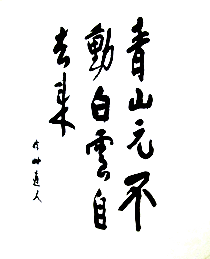 青山元不
動白雲自
去来